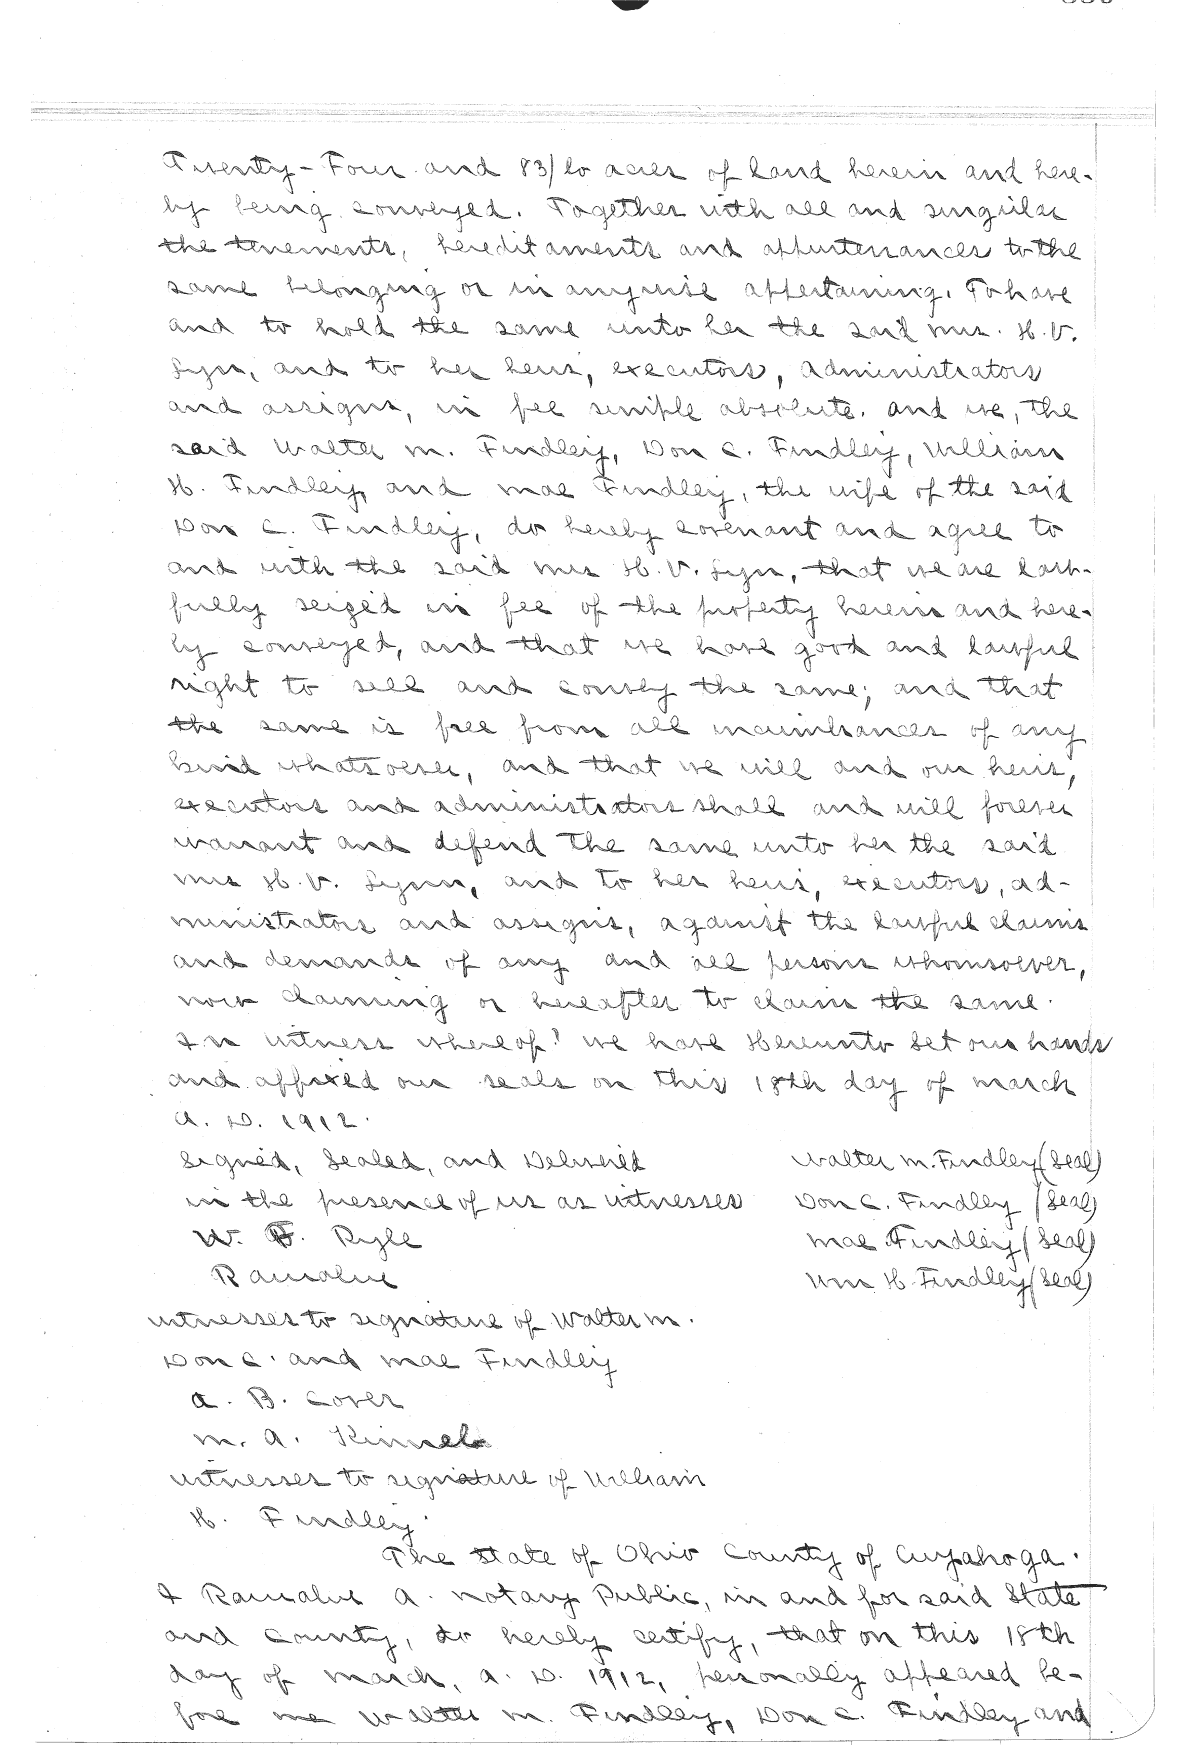 Twenty-Four and 83/100 acres of land herein and here-
by being conveyed. Together with all and singular
the tenements, hereditaments and appurtenances to the
same belonging or in anywise appertaining. To have
and to hold the same unto her the said Mrs. H.V.
Lynn, and to her heirs, executors, administrators
and assigns, in fee simple absolute. And we, the
said Walter M. Findley, Don C. Findley, William
H. Findley, and Mae Findley, the wife of the said
Don C. Findley, do hereby covenant and agree to
and with the said Mrs H.V. Lynn, that we are law-
fully seized in fee of the property herein and here-
by conveyed, and that we have good and lawful
right to sell and convey the same; and that
the same is free from all incumbrances of any
kind whatsoever, and that we will and our heirs,
executors and administrators shall and will forever
warrant and defend the same unto her the said
Mrs H.V. Lynn, and to her heirs, executors, ad-
ministrators and assigns, against the lawful claims
and demands of any and all persons whomsoever,
now claiming or hereafter to claim the same.
In witness whereof! we have Hereunto Set our hands
and affixed our seals on this 18th day of March
A. D. 1912.
Signed, Sealed, and Delivered Walter M. Findley (Seal)
in the presence of us as witnesses Don C. Findley (Seal)
W. F. Ryle Mae Findley (Seal)
Wm H. Findley (Seal)
witnesses to signature of Walter M.
Don C. and Mae Findley
A. B. Cover
M. A.
witnesses to signature of William
H. Findley.
The State of Ohio County of Cuyahoga.
I A. Notary Public, in and for said State
and County, do hereby certify, that on this 18th
day of March, A. D. 1912, personally appeared be-
fore me Walter M. Findley, Don C. Findley and